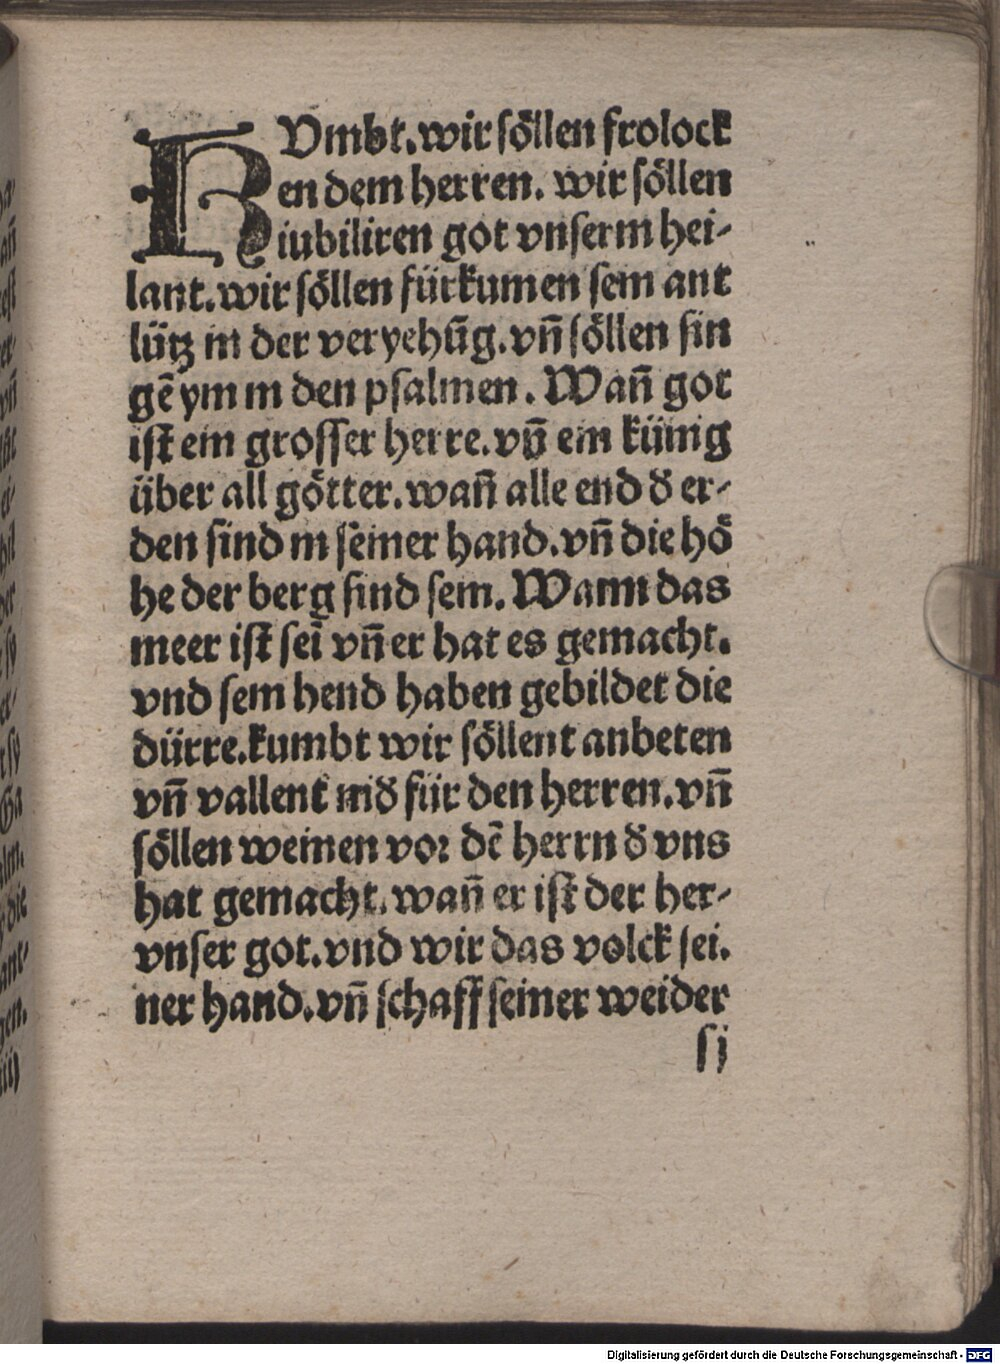 KVmbt.wir söllen frolock
en dem herren. wir söllen
iubiliren got vnserm hei-
lant.wir söllen fürkumen sein ant
lütz in der veryehūg.vn̄ söllen sin
gē ym in den psalmen. Wan̄ got
ist ein grosser herre.vn̄ ein künig
über all götter.wan̄ alle end d̕ er-
den sind in seiner hand.vn̄ die hö
he der berg sind sein. Wann das
meer ist seī vn̄ er hat es gemacht.
vnd sein hend haben gebildet die
dürre.kumbt wir söllent anbeten
vn̄ vallent nid̕ für den herren.vn̄
söllen weinen vor dē herrn d̕ vns
hat gemacht.wan̄ er ist der her-
vnser got.vnd wir das volck sei.
ner hand.vn̄ schaff seiner weider
sj
Digitalisierung gefördert durch die Deutsche Forschungsgemeinschaft - DFG